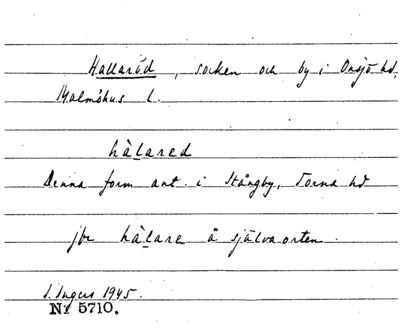 Hallaröd, socken och by i Onsjö hd,
Malmöhus l.
hàlared
Denna form ant. i Stångby, Torna hd
jfr hàlare å själva orten.
I. Ingers 1945.
Nr 5710.